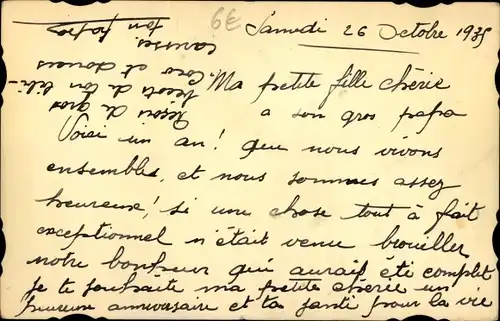 6€
Samedi 26 Octobre 1935
Ma petite fille chérie
a son gros papa
Voici un an! que nous vivons
ensembles, et nous sommes assez
heureux! si une chose tout à fait
exceptionnel n'était venue brouiller
notre bonheur qui aurait été complet
je te souhaite ma petite chérie un
heureuse anniversaire et ta santé pour la vie
Reçois de gros
de ton
Coco et
caresses
ton papa